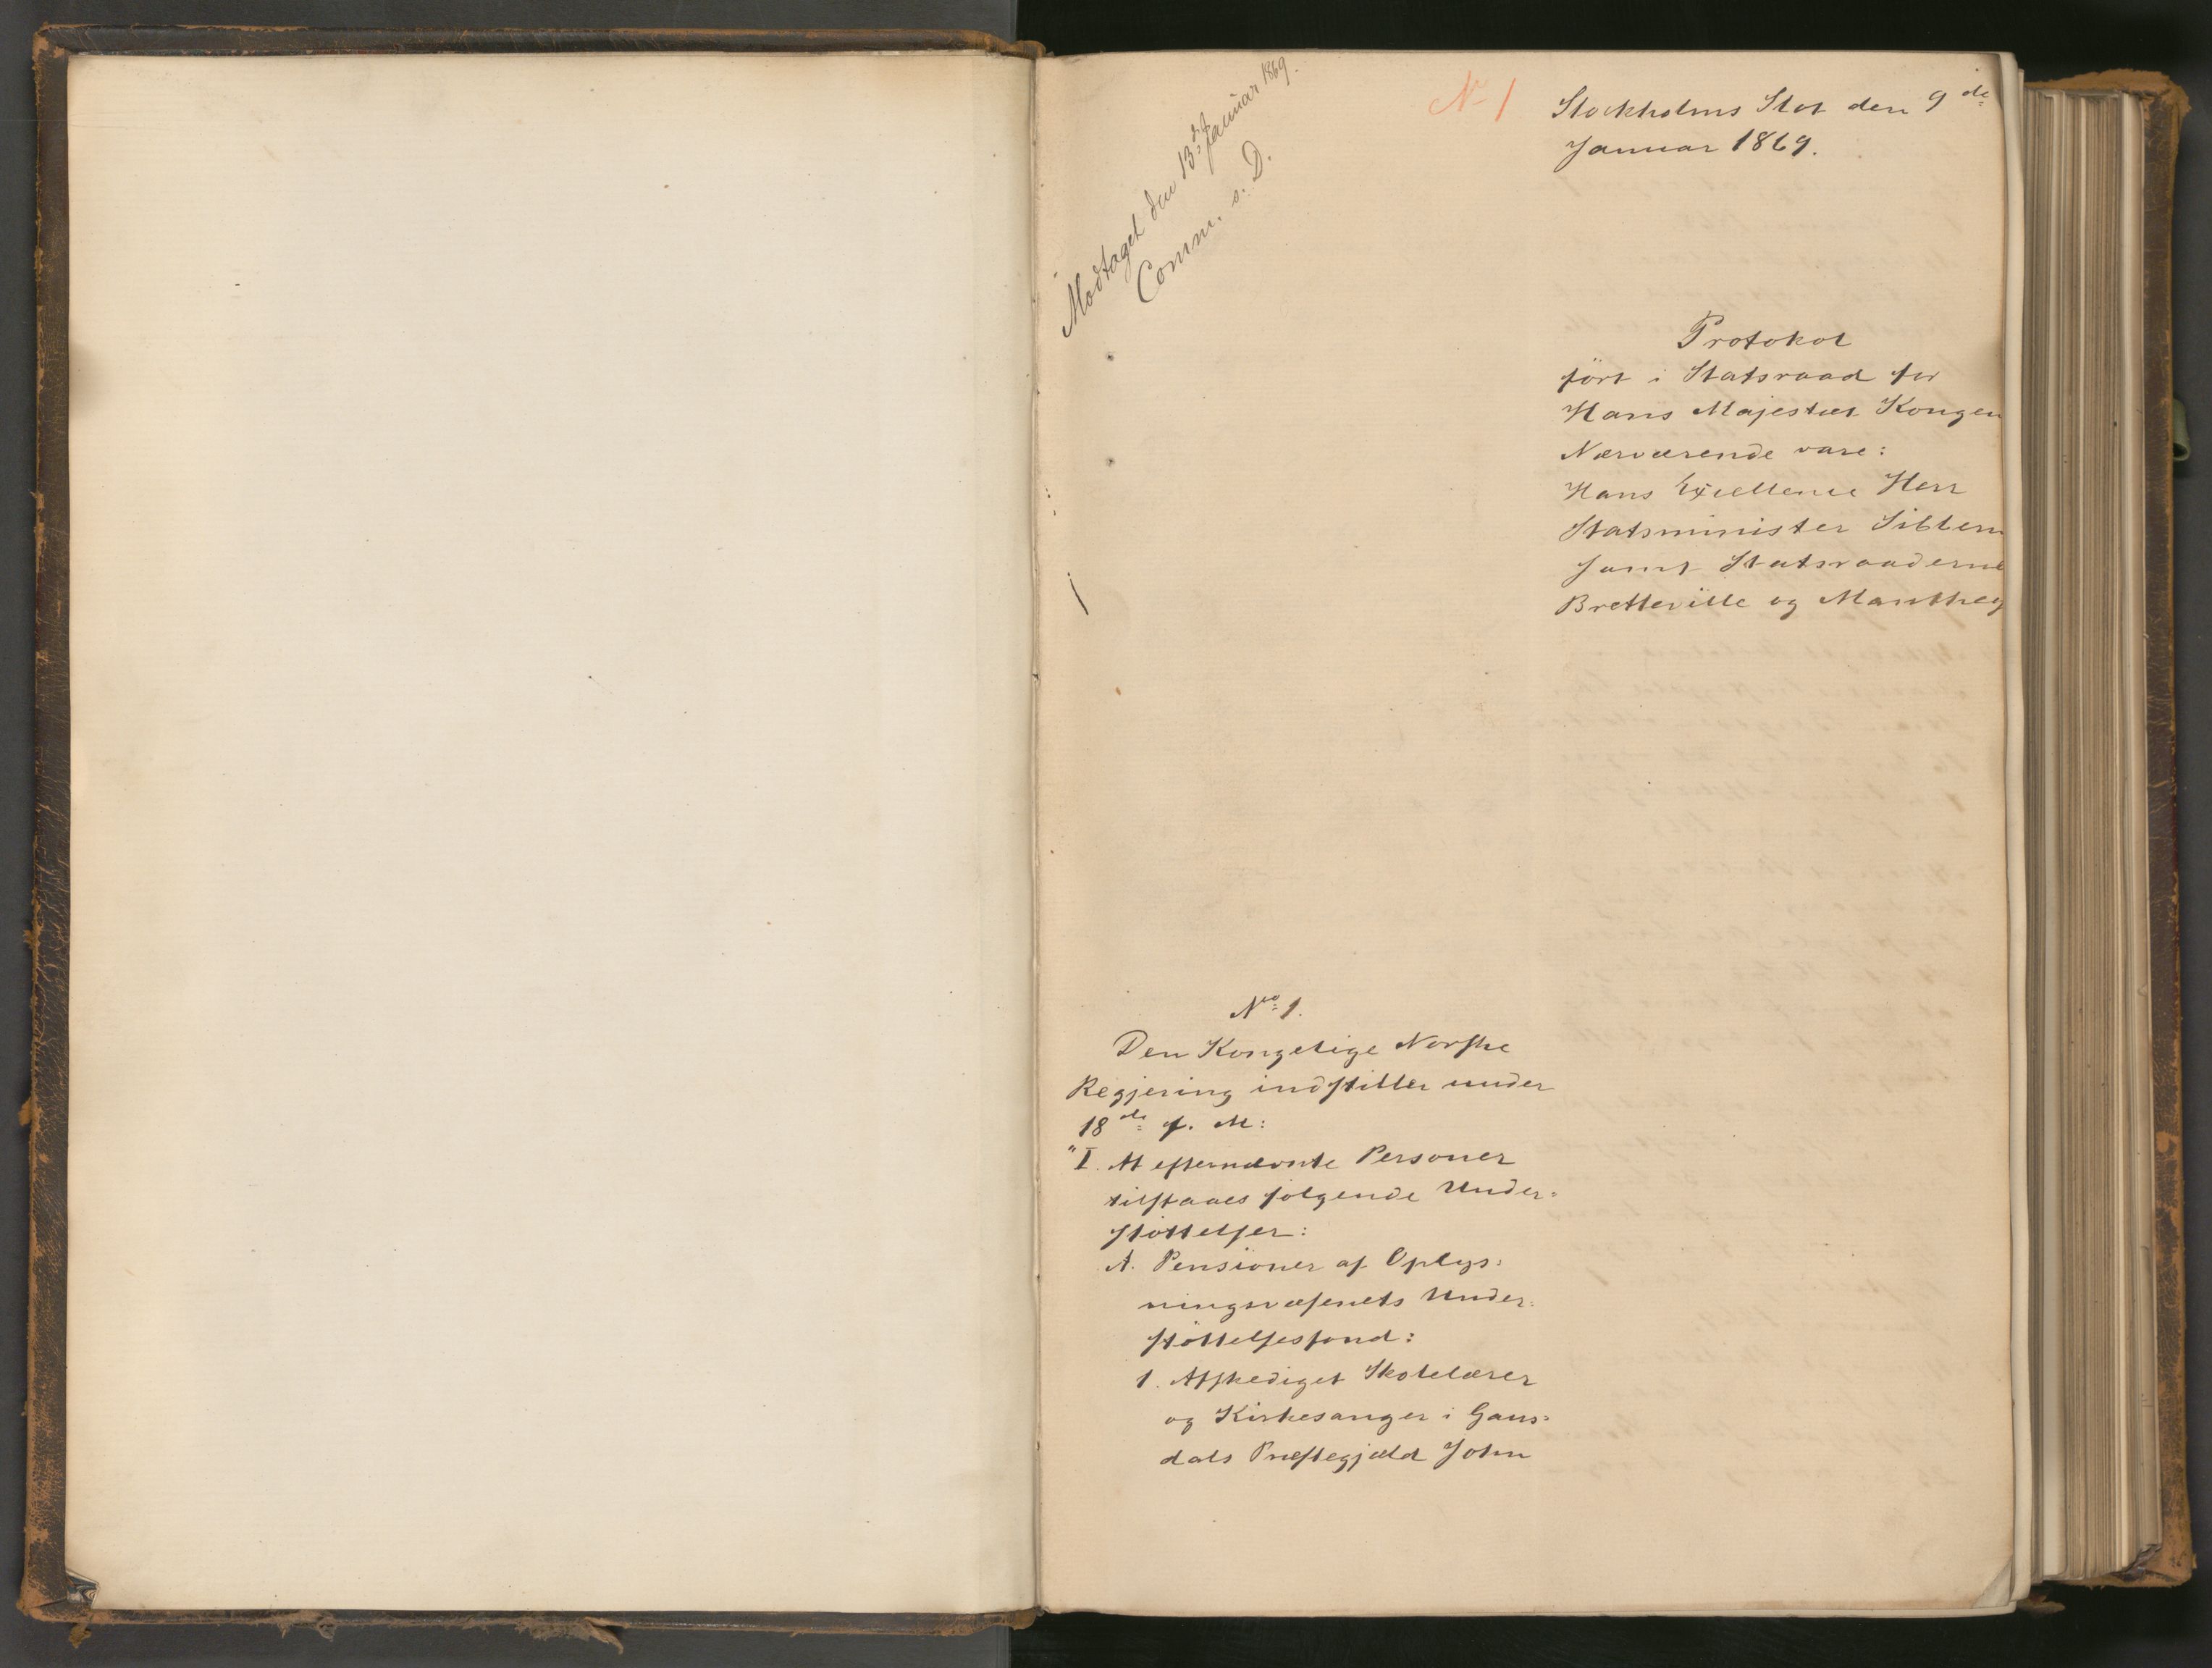 Modtaget den 13de Januar 1869.
Comm. s. D.
No 1
Stockholms Slot den 9de
Januar 1869.
Protokol
ført i Statsraad for
Hans Majestæt Kongen
Nærværende vare:
Hans Excellence Herr
Statsminister Sibbern
samt Statsraaderne
Bretteville og Manthey
No 1.
Den Kongelige Norske
Regjering indstiller under
18de f. M:
"I. At efternævnte Personer
tilstaaes følgende Under=
støttelser:
A. Pensioner af Oplys=
ningsvæsenets Under=
støttelsesfond:
1. Afskediget Skolelærer
og Kirkesanger i Gaus=
dals Præstegjæld John